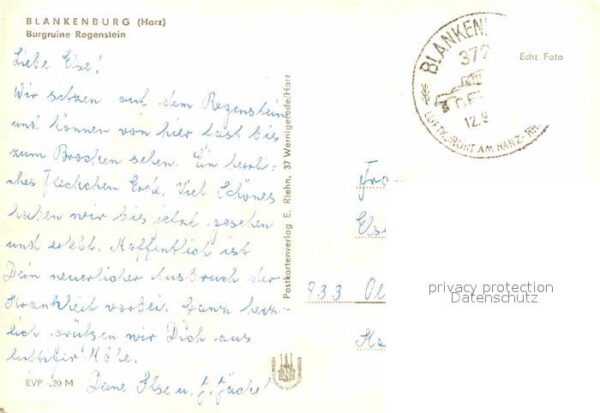 BLANKENBURG (Harz)
Burgruine Regenstein
Liebe Else!
Wir sitzen auf dem Regenstein
und können von hier fast bis
zum Brocken sehen. Ein herrli-
ches Fleckchen Erde. Viel Schönes
haben wir bis jetzt gesehen
und erlebt. Hoffentlich ist
Dein neuerlicher Ausbruch der
Krankheit vorbei. Ganz herz-
lich grüßen wir Dich aus
luftiger Höhe.
Deine Ilse u.
EVP -,20 M
Postkartenverlag E. Riehn, 37 Wernigerode/Harz
BLANKEN
372
12.9
LUFTKURORT AM HARZ-
Echt Foto
Fr
Els
933 Ol
privacy protection
Datenschutz